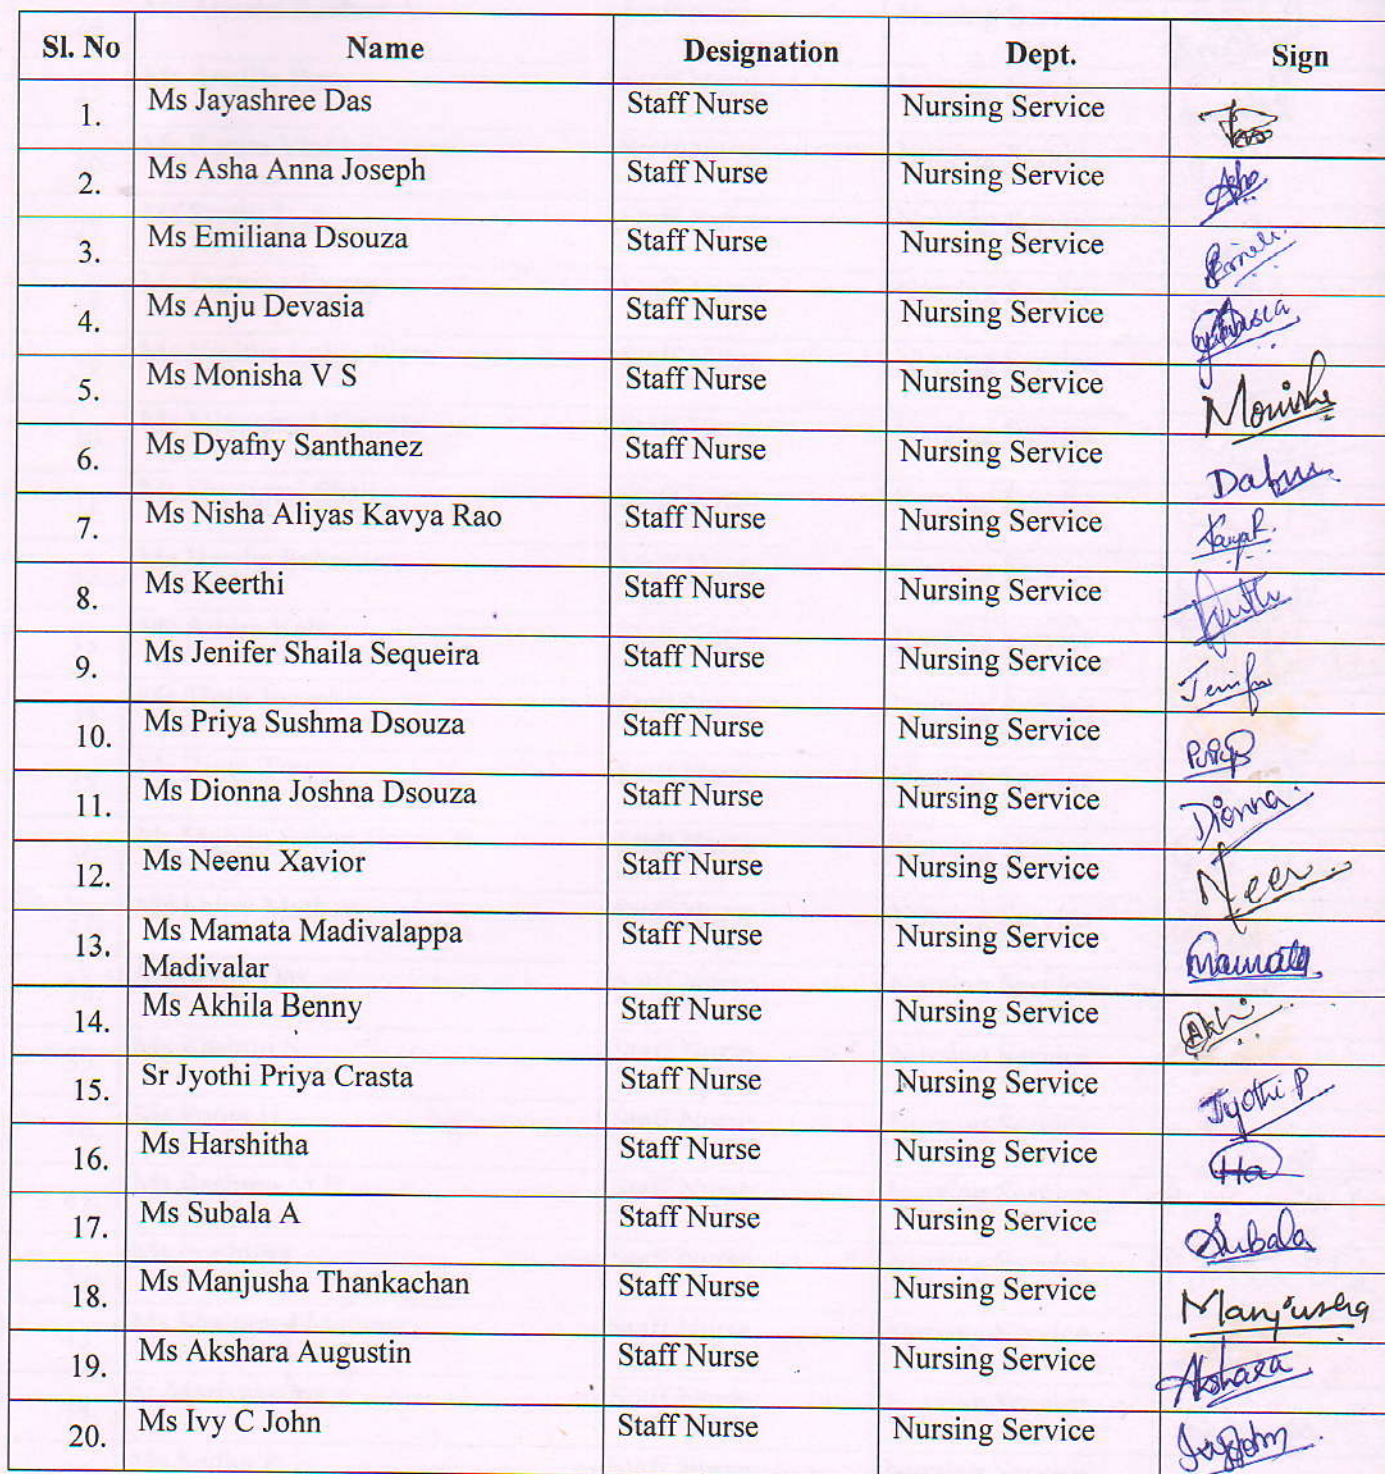 Sl. No Name Designation Dept. Sign
1. Ms Jayashree Das Staff Nurse Nursing Service
2. Ms Asha Anna Joseph Staff Nurse Nursing Service Asha
3. Ms Emiliana Dsouza Staff Nurse Nursing Service
4. Ms Anju Devasia Staff Nurse Nursing Service
5. Ms Monisha V S Staff Nurse Nursing Service Monisha
6. Ms Dyafny Santhanez Staff Nurse Nursing Service
7. Ms Nisha Aliyas Kavya Rao Staff Nurse Nursing Service KavyaR.
8. Ms Keerthi Staff Nurse Nursing Service
9. Ms Jenifer Shaila Sequeira Staff Nurse Nursing Service Jenifer
10. Ms Priya Sushma Dsouza Staff Nurse Nursing Service
11. Ms Dionna Joshna Dsouza Staff Nurse Nursing Service Dionna.
12. Ms Neenu Xavior Staff Nurse Nursing Service
13. Ms Mamata Madivalappa Staff Nurse Nursing Service Mamata
Madivalar
14. Ms Akhila Benny Staff Nurse Nursing Service Akhi
15. Sr Jyothi Priya Crasta Staff Nurse Nursing Service Jyothi P
16. Ms Harshitha Staff Nurse Nursing Service Ha
17. Ms Subala A Staff Nurse Nursing Service Subala
18. Ms Manjusha Thankachan Staff Nurse Nursing Service Manjusha
19. Ms Akshara Augustin Staff Nurse Nursing Service Akshara
20. Ms Ivy C John Staff Nurse Nursing Service IvyJohn.